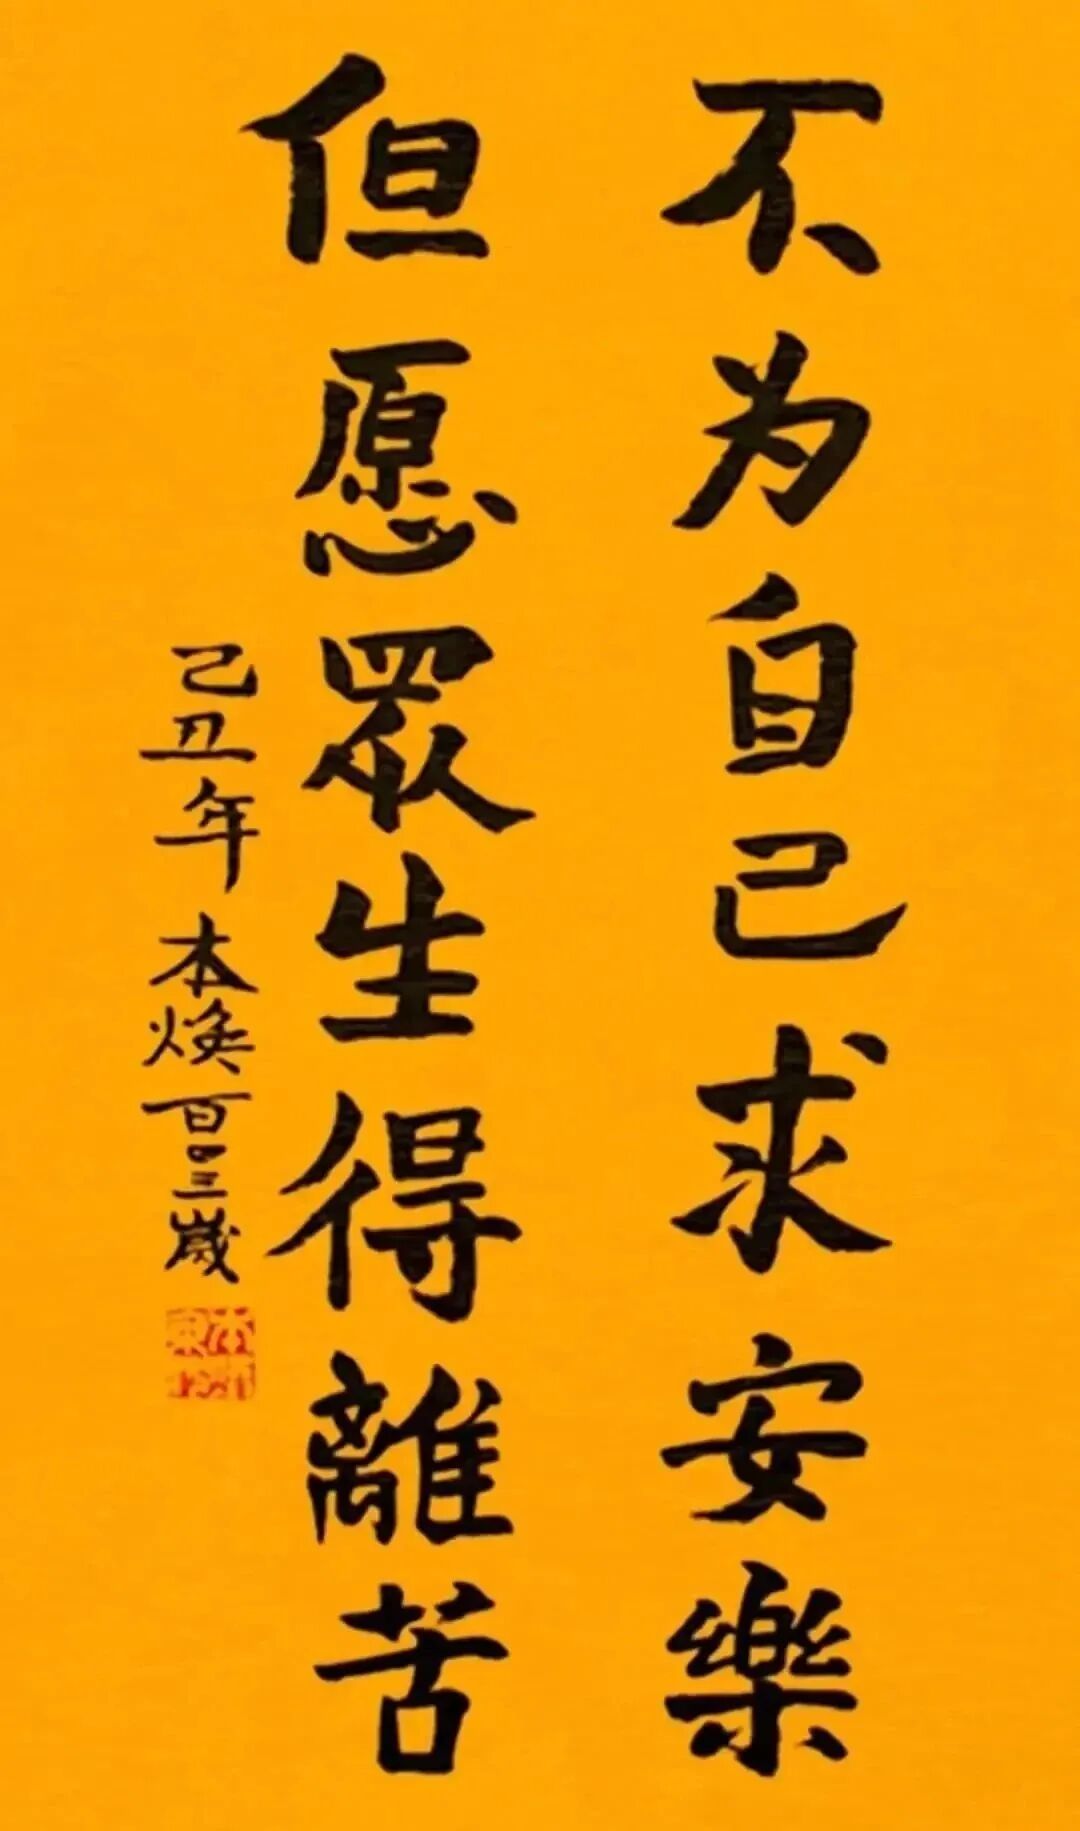 不为自己求安樂
但愿眾生得離苦
己丑年本焕百〇三歲